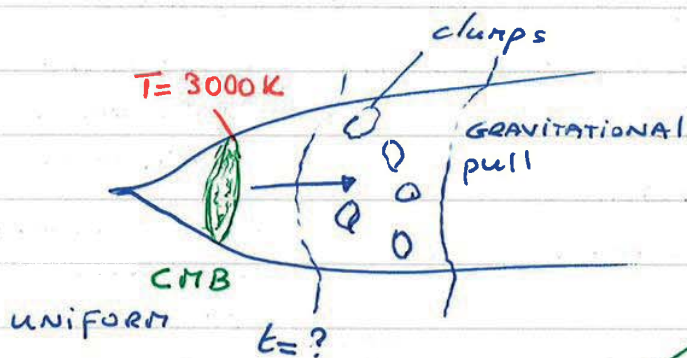 clumps
T= 3000K
GRAVITATIONAL
pull
CMB
UNIFORM
t= ?